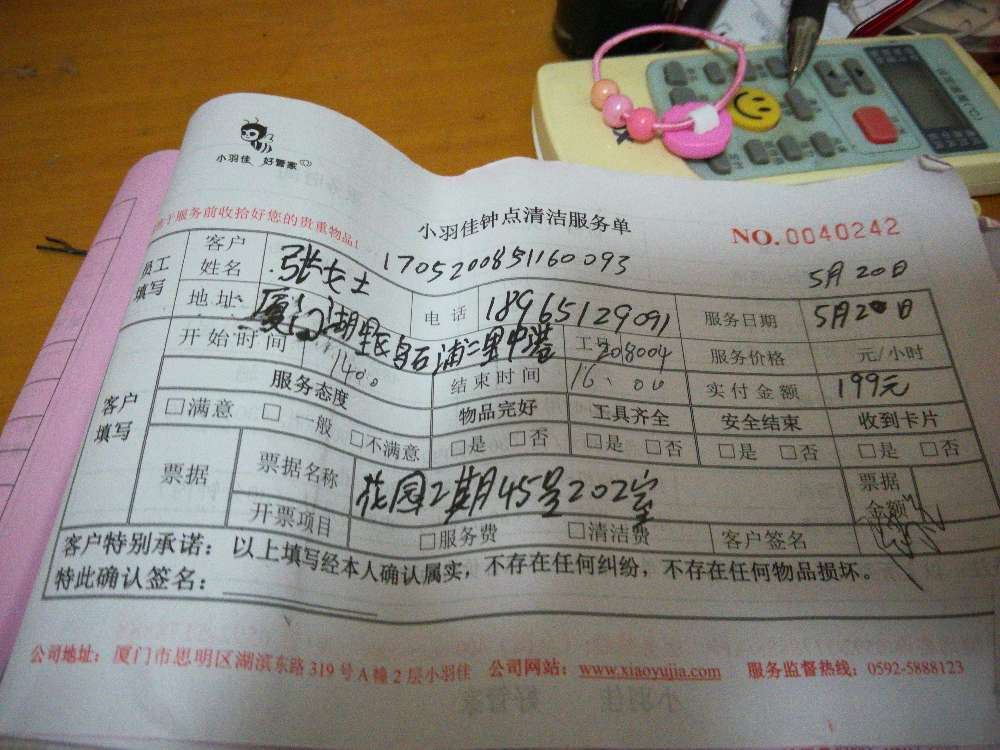 小羽佳 好管家
请于服务前收拾好您的贵重物品!
小羽佳钟点清洁服务单
NO.0040242
1705200851160093
5月20日
员工填写
客户姓名 张女士 电话 18965129091 服务日期 5月20日
地址 厦门湖里区乌石浦二里中港 工号 208004 服务价格 元/小时
开始时间 1400 结束时间 16:00 实付金额 199元
客户填写
服务态度 物品完好 工具齐全 安全结束 收到卡片
□满意 □一般 □不满意 □是 □否 □是 □否 □是 □否 □是 □否
票据 票据名称 花园2期45号202室 票据金额
开票项目 □服务费 □清洁费 客户签名
客户特别承诺：以上填写经本人确认属实，不存在任何纠纷，不存在任何物品损坏。
特此确认签名：
公司地址：厦门市思明区湖滨东路319号A幢2层小羽佳 公司网站：www.xiaoyujia.com 服务监督热线：0592-5888123